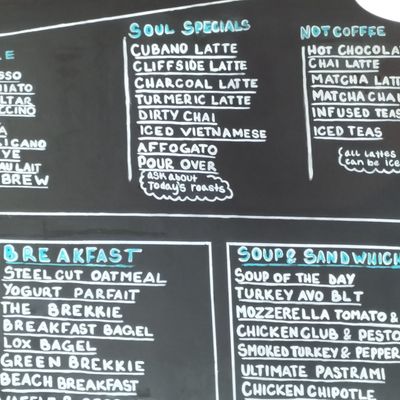 SOUL SPECIALS
CUBANO LATTE
CLIFFSIDE LATTE
CHARCOAL LATTE
TURMERIC LATTE
DIRTY CHAI
ICED VIETNAMESE
AFFOGATO
POUR OVER
ask about
Today's roasts
NOT COFFEE
HOT CHOCOLA
CHAI LATTE
MATCHA LATT
MATCHA CHAI
INFUSED TEAS
ICED TEAS
all lattes
can be ice
AU LAIT
BREW
BREAKFAST
STEEL CUT OATMEAL
YOGURT PARFAIT
THE BREKKIE
BREAKFAST BAGEL
LOX BAGEL
GREEN BREKKIE
BEACH BREAKFAST
SOUP & SANDWHICH
SOUP OF THE DAY
TURKEY AVO BLT
MOZZERELLA TOMATO &
CHICKEN CLUB & PESTO
SMOKED TURKEY & PEPPER
ULTIMATE PASTRAMI
CHICKEN CHIPOTLE